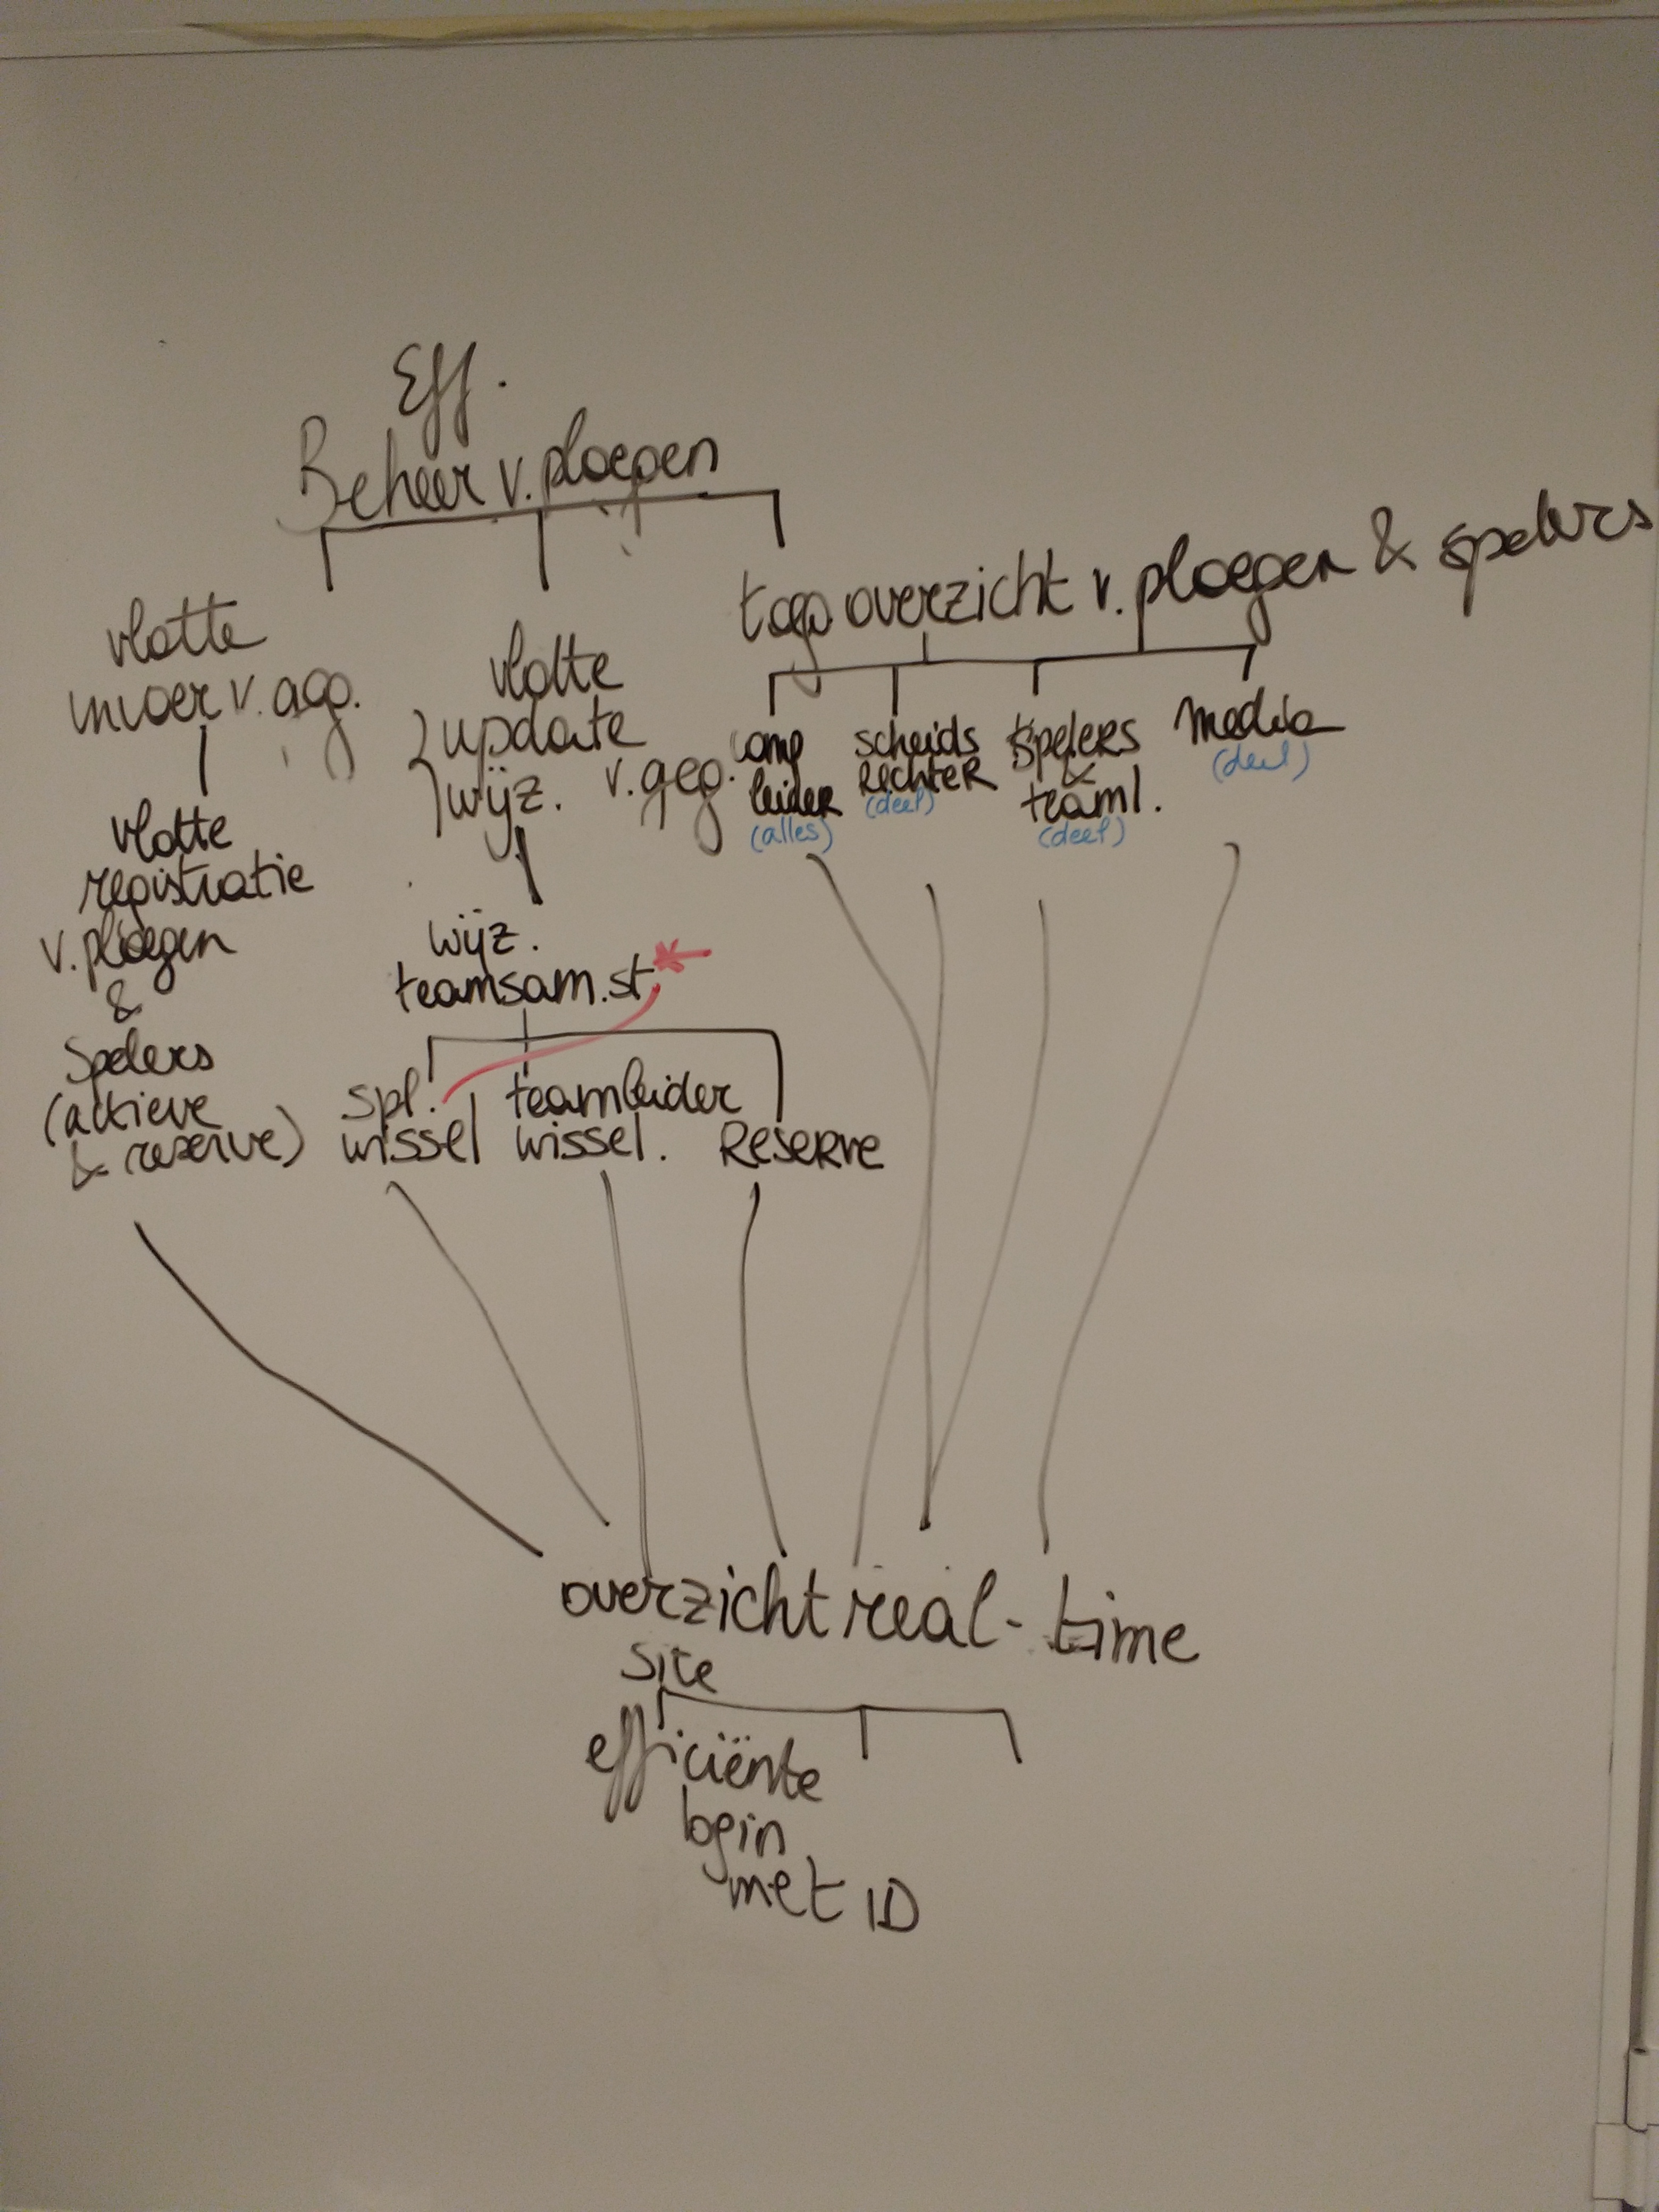 Eff.
Beheer v. ploegen
vlotte
invoer v. geg.
vlotte
registratie
v. ploegen
&
Spelers
(actieve
& reserve)
vlotte
update
wijz. v. geg.
wijz.
teamsam.st
spl.
wissel
teamleider
wissel.
Reserve
overzicht v. ploegen & spelers
comp
leider
(alles)
scheids
Rechter
(deel)
Spelers
&
teaml.
(deel)
media
(deel)
overzicht real-time
Site
efficiënte
login
met ID